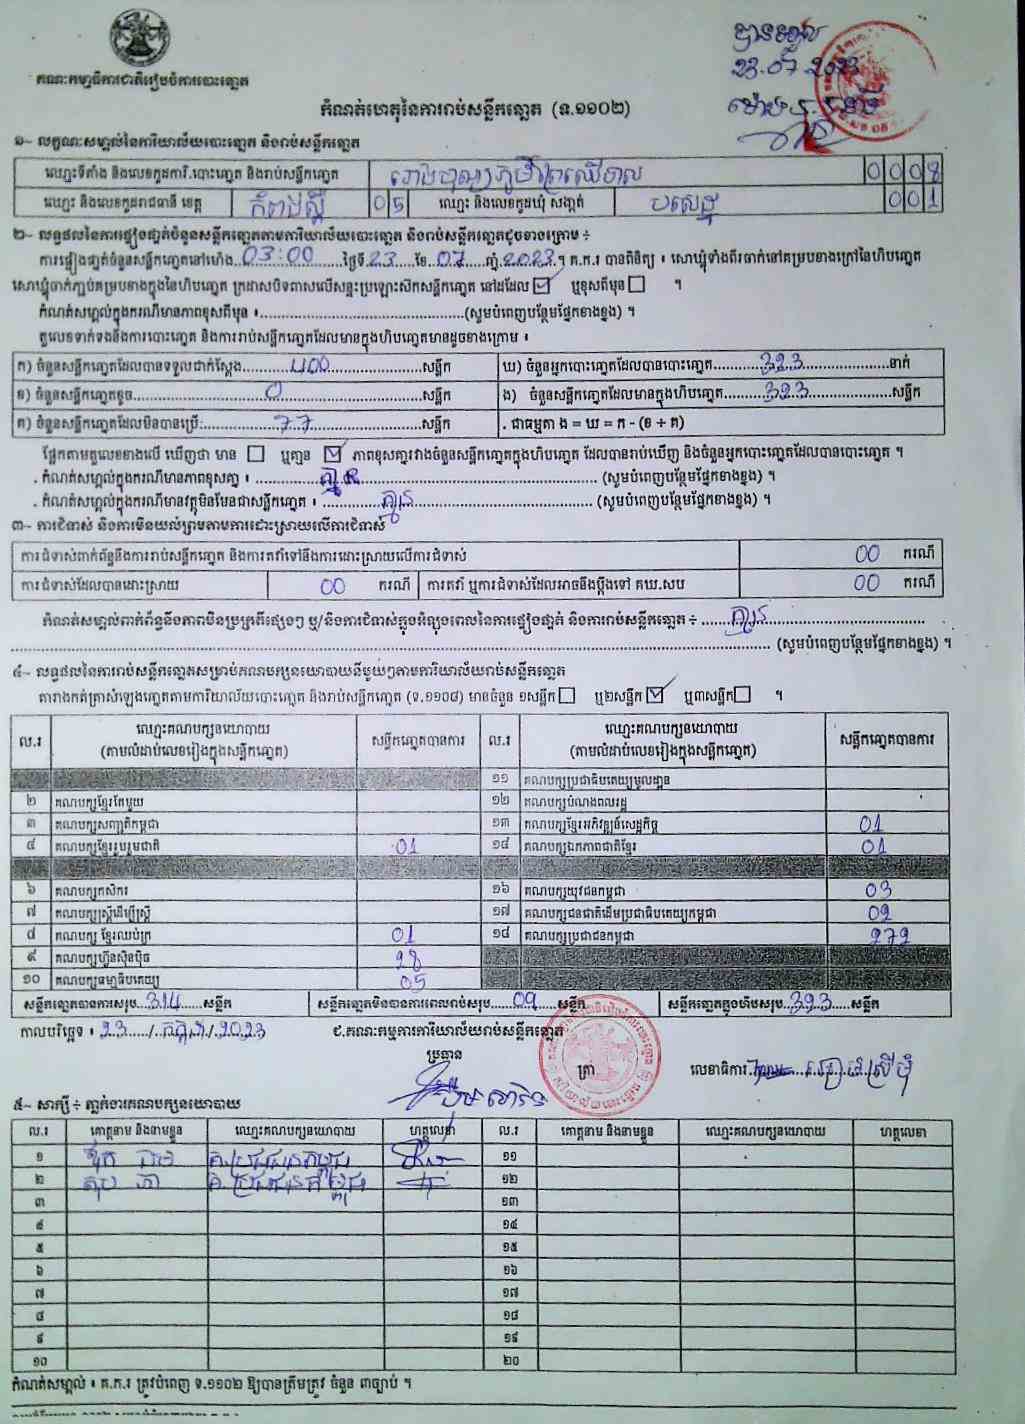 បានទទួល
23.07.2023
គណៈកម្មាធិការជាតិរៀបចំការបោះឆ្នោត
កំណត់ហេតុនៃការរាប់សន្លឹកឆ្នោត (ទ.១១០២)
១~ លក្ខណៈសម្គាល់នៃការិយាល័យបោះឆ្នោត និងរាប់សន្លឹកឆ្នោត
ឈ្មោះទីតាំង និងលេខកូដការិ.បោះឆ្នោត និងរាប់សន្លឹកឆ្នោត 0008
ឈ្មោះ និងលេខកូដរាជធានី ខេត្ត កំពង់ស្ពឺ 05 ឈ្មោះ និងលេខកូដឃុំ សង្កាត់ បរសេដ្ឋ 001
២~ លទ្ធផលនៃការផ្ទៀងផ្ទាត់ចំនួនសន្លឹកឆ្នោតតាមការិយាល័យបោះឆ្នោត និងរាប់សន្លឹកឆ្នោតដូចខាងក្រោម ៖
ការផ្ទៀងផ្ទាត់ចំនួនសន្លឹកឆ្នោតនៅម៉ោង 03:00 ថ្ងៃទី 23 ខែ 07 ឆ្នាំ 2023 ។ គ.ក.រ បានពិនិត្យ ៖ សោឃ្លុំទាំងពីរធាក់នៅគម្របខាងក្រៅនៃហិបឆ្នោត
សោឃ្លុំចាក់ភ្ជាប់គម្របខាងក្នុងនៃហិបឆ្នោត ក្រដាសបិទពាសលើសន្ទះប្រឡោះសឹកសន្លឹកឆ្នោត នៅដដែល ☑ ឬខុសពីមុន ☐ ។
កំណត់សម្គាល់ក្នុងករណីមានភាពខុសពីមុន ៖ (សូមបំពេញបន្ថែមផ្នែកខាងខ្នង) ។
តួលេខទាក់ទងនឹងការបោះឆ្នោត និងការរាប់សន្លឹកឆ្នោតដែលមានក្នុងហិបឆ្នោតមានដូចខាងក្រោម ៖
ក) ចំនួនសន្លឹកឆ្នោតដែលបានទទួលជាក់ស្តែង 400 សន្លឹក ឃ) ចំនួនអ្នកបោះឆ្នោតដែលបានបោះឆ្នោត 323 នាក់
ខ) ចំនួនសន្លឹកឆ្នោតខូច 0 សន្លឹក ង) ចំនួនសន្លឹកឆ្នោតដែលមានក្នុងហិបឆ្នោត 323 សន្លឹក
គ) ចំនួនសន្លឹកឆ្នោតដែលមិនបានប្រើ: 77 សន្លឹក . ជាធម្មតា ង = ឃ = ក - (ខ + គ)
ផ្អែកតាមតួលេខខាងលើ ឃើញថា មាន ☐ ឬគ្មាន ☑ ភាពខុសគ្នារវាងចំនួនសន្លឹកឆ្នោតក្នុងហិបឆ្នោត ដែលបានរាប់ឃើញ និងចំនួនអ្នកបោះឆ្នោតដែលបានបោះឆ្នោត ។
. កំណត់សម្គាល់ក្នុងករណីមានភាពខុសគ្នា ៖ គ្មាន (សូមបំពេញបន្ថែមផ្នែកខាងខ្នង) ។
. កំណត់សម្គាល់ក្នុងករណីមានវត្ថុមិនមែនជាសន្លឹកឆ្នោត ៖ គ្មាន (សូមបំពេញបន្ថែមផ្នែកខាងខ្នង) ។
៣~ ការជំទាស់ និងការមិនយល់ព្រមតាមការដោះស្រាយលើការជំទាស់
ការជំទាស់ពាក់ព័ន្ធនឹងការរាប់សន្លឹកឆ្នោត និងការតវ៉ាទៅនឹងការដោះស្រាយលើការជំទាស់ 00 ករណី
ការជំទាស់ដែលបានដោះស្រាយ 00 ករណី ការតវ៉ា ឬការជំទាស់ដែលអាចនឹងប្តឹងទៅ គឃ.សប 00 ករណី
កំណត់សម្គាល់ពាក់ព័ន្ធនឹងភាពមិនប្រក្រតីផ្សេងៗ ឬ/និងការជំទាស់ក្នុងអំឡុងពេលនៃការផ្ទៀងផ្ទាត់ និងការរាប់សន្លឹកឆ្នោត ៖ គ្មាន
(សូមបំពេញបន្ថែមផ្នែកខាងខ្នង) ។
៤~ លទ្ធផលនៃការរាប់សន្លឹកឆ្នោតសម្រាប់គណបក្សនយោបាយនីមួយៗតាមការិយាល័យរាប់សន្លឹកឆ្នោត
តារាងកត់ត្រាសំឡេងឆ្នោតតាមការិយាល័យបោះឆ្នោត និងរាប់សន្លឹកឆ្នោត (ទ.១១០៨) មានចំនួន ១សន្លឹក ☐ ឬ២សន្លឹក ☑ ឬ៣សន្លឹក ☐ ។
ល.រ ឈ្មោះគណបក្សនយោបាយ (តាមលំដាប់លេខរៀងក្នុងសន្លឹកឆ្នោត) សន្លឹកឆ្នោតបានការ ល.រ ឈ្មោះគណបក្សនយោបាយ (តាមលំដាប់លេខរៀងក្នុងសន្លឹកឆ្នោត) សន្លឹកឆ្នោតបានការ
១១ គណបក្សប្រជាធិបតេយ្យមូលដ្ឋាន
២ គណបក្សខ្មែរតែមួយ ១២ គណបក្សបំណងពលរដ្ឋ
៣ គណបក្សសញ្ជាតិកម្ពុជា ១៣ គណបក្សខ្មែរអភិវឌ្ឍន៍សេដ្ឋកិច្ច 01
៤ គណបក្សខ្មែររួបរួមជាតិ 01 ១៤ គណបក្សឯកភាពជាតិខ្មែរ 01
៦ គណបក្សកសិករ ១៦ គណបក្សយុវជនកម្ពុជា 03
៧ គណបក្សស្ត្រីដើម្បីស្ត្រី ១៧ គណបក្សជនជាតិដើមប្រជាធិបតេយ្យកម្ពុជា 02
៨ គណបក្ស ខ្មែរឈប់ក្រ 01 ១៨ គណបក្សប្រជាជនកម្ពុជា 272
៩ គណបក្សហ្វ៊ុនស៊ិនប៉ិច 28
១០ គណបក្សធម្មាធិបតេយ្យ 05
សន្លឹកឆ្នោតបានការសរុប 314 សន្លឹក សន្លឹកឆ្នោតមិនបានការពេលរាប់សរុប 09 សន្លឹក សន្លឹកឆ្នោតក្នុងហិបសរុប 323 សន្លឹក
កាលបរិច្ឆេទ ៖ 23 / កក្កដា / 2023 ជ.គណៈកម្មការការិយាល័យរាប់សន្លឹកឆ្នោត
ប្រធាន
ត្រា លេខាធិការ
៥~ សាក្សី ៖ ភ្នាក់ងារគណបក្សនយោបាយ
ល.រ គោត្តនាម និងនាមខ្លួន ឈ្មោះគណបក្សនយោបាយ ហត្ថលេខា ល.រ គោត្តនាម និងនាមខ្លួន ឈ្មោះគណបក្សនយោបាយ ហត្ថលេខា
១ គ.ប្រជាជនកម្ពុជា ១១
២ គ.ប្រជាជនកម្ពុជា ១២
៣ ១៣
៤ ១៤
៥ ១៥
៦ ១៦
៧ ១៧
៨ ១៨
៩ ១៩
១០ ២០
កំណត់សម្គាល់ ៖ គ.ក.រ ត្រូវបំពេញ ទ.១១០២ ឱ្យបានត្រឹមត្រូវ ចំនួន ៣ច្បាប់ ។